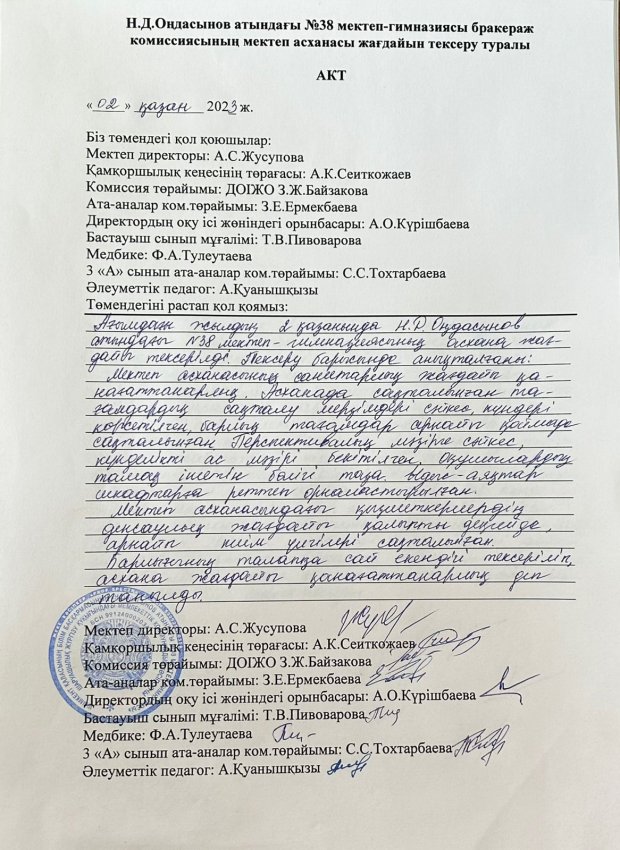 Н.Д.Оңдасынов атындағы №38 мектеп-гимназиясы бракераж
комиссиясының мектеп асханасы жағдайын тексеру туралы
АКТ
«02» қазан 2023 ж.
Біз төмендегі қол қоюшылар:
Мектеп директоры: А.С.Жусупова
Қамқоршылық кеңесінің төрағасы: А.К.Сеиткожаев
Комиссия төрайымы: ДОІЖО З.Ж.Байзакова
Ата-аналар ком.төрайымы: З.Е.Ермекбаева
Директордың оқу ісі жөніндегі орынбасары: А.О.Күрішбаева
Бастауыш сынып мұғалімі: Т.В.Пивоварова
Медбике: Ф.А.Тулеутаева
3 «А» сынып ата-аналар ком.төрайымы: С.С.Тохтарбаева
Әлеуметтік педагог: А.Қуанышқызы
Төмендегіні растап қол қоямыз:
Ағымдағы жылдың 2 қазанында Н.Д.Оңдасынов
атындағы №38 мектеп-гимназиясының асхана жағ-
дайы тексерілді. Тексеру барысында анықталғаны:
Мектеп асханасының санитарлық жағдайы қа-
нағаттанарлық. Асханада сақталынған та-
ғамдардың сақталу мерзімдері сәйкес, күндері
көрсетілген, барлық тағамдар арнайы қоймада
сақталынған. Перспективалық мәзірге сәйкес,
күнделікті ас мәзірі бекітілген. Оқушылардың
тамақ ішетін бөлігі таза. Ыдыс-аяқтар
шкафтарға реттеп орналастырылған.
Мектеп асханасындағы қызметкерлердің
денсаулық жағдайы қалыпты деңгейде,
арнайы киім үлгілері сақталынған.
Барлығының талапқа сай екендігі тексеріліп,
асхана жағдайы қанағаттанарлық деп
танылды.
Мектеп директоры: А.С.Жусупова
Қамқоршылық кеңесінің төрағасы: А.К.Сеиткожаев
Комиссия төрайымы: ДОІЖО З.Ж.Байзакова
Ата-аналар ком.төрайымы: З.Е.Ермекбаева
Директордың оқу ісі жөніндегі орынбасары: А.О.Күрішбаева
Бастауыш сынып мұғалімі: Т.В.Пивоварова
Медбике: Ф.А.Тулеутаева
3 «А» сынып ата-аналар ком.төрайымы: С.С.Тохтарбаева
Әлеуметтік педагог: А.Қуанышқызы